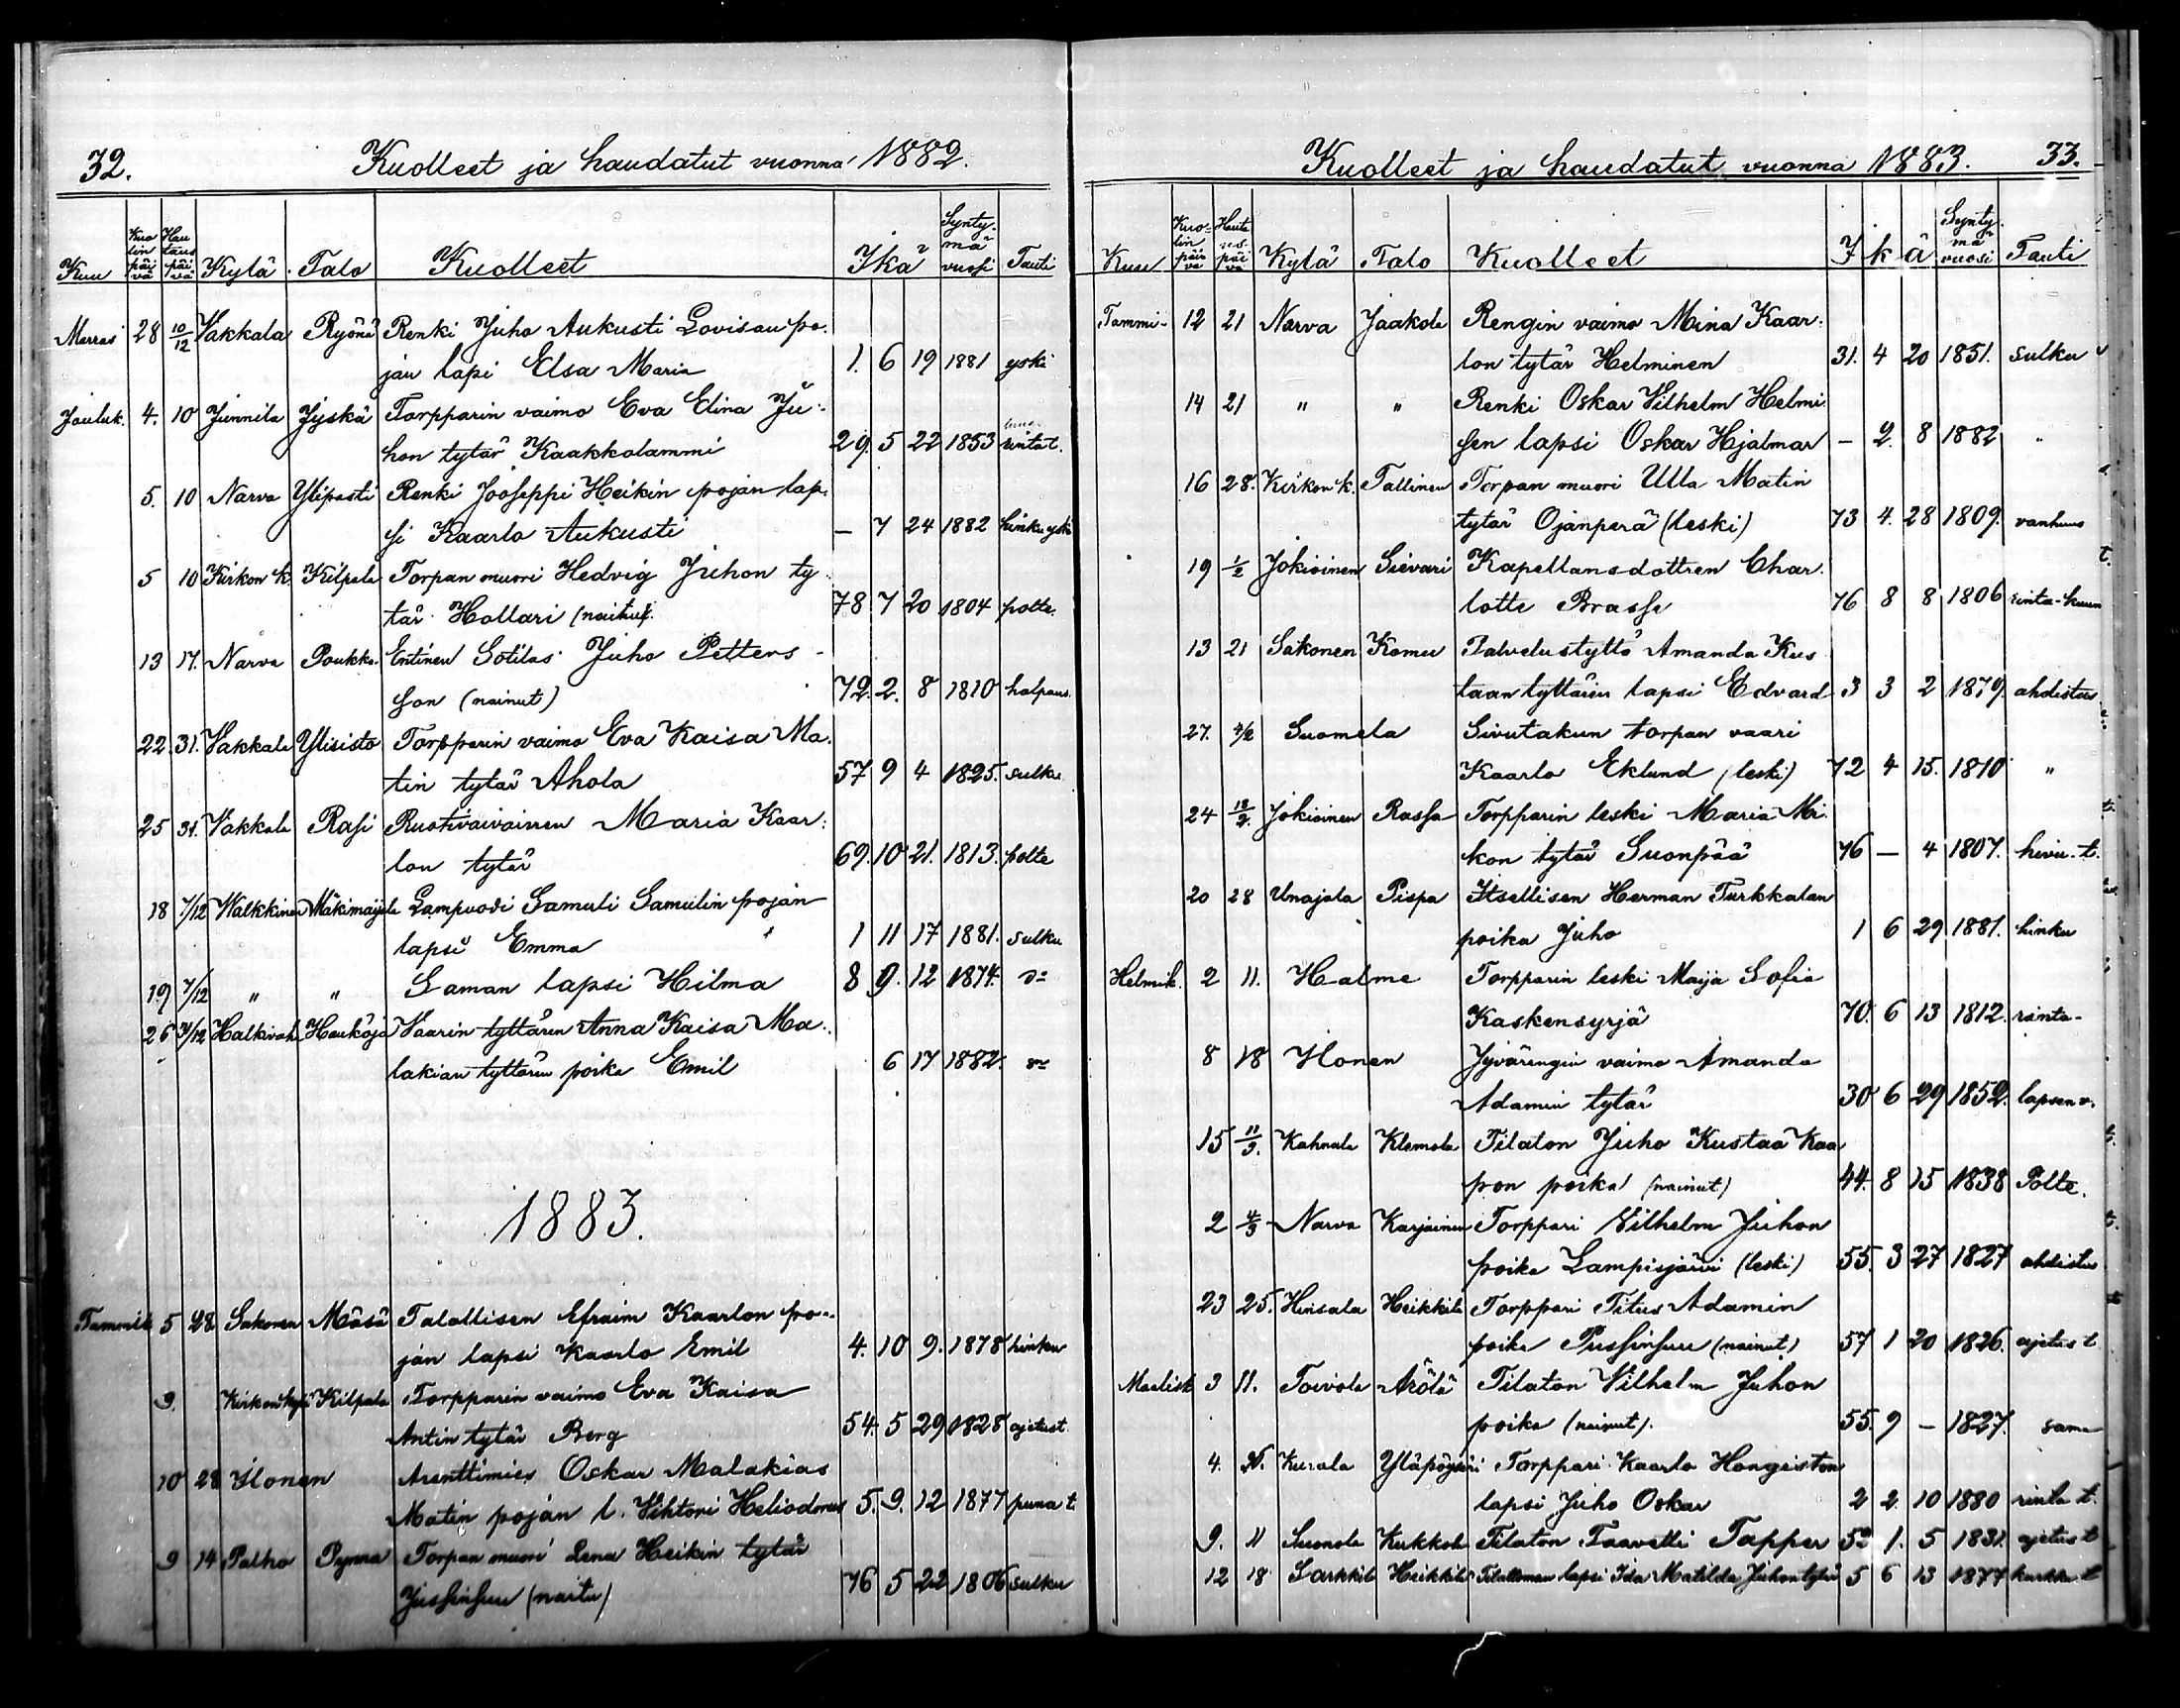 32. Kuolleet ja haudatut vuonna 1882.
Kuu Kuolinpäivä Hautauspäivä Kylä Talo Kuolleet Ikä Syntymävuosi Tauti
Marras 28 10/12 Vakkala Ryönä Renki Juho Aukusti Lovisan po-
jan lapsi Elsa Maria 1. 6 19 1881 yskä
Jouluk. 4. 10 Junnila Jyskä Torpparin vaimo Eva Elina Ju-
hon tytär Kaakkolammi 29. 5 22 1853 rintat.
5. 10 Narva Ylipasti Renki Jooseppi Heikin pojan lap-
si Kaarlo Aukusti – 7 24 1882 hinku yskä
5 10 Kirkon k. Kilpala Torpan muori Hedvig Juhon ty-
tär Hollari (naitu). 78 7 20 1804 polte.
13 17. Narva Poukka. Entinen Sotilas Juho Petters-
son (nainut) 72. 2. 8 1810 halpaus.
22. 31. Vakkala Ylisisto Torpparin vaimo Eva Kaisa Ma-
tin tytär Ahola 57 9 4 1825. sulku
25 31. Vakkala Rasi Ruotivaivainen Maria Kaar-
lon tytär 69. 10 21. 1813. polte
18 7/12 Walkkinen Mäkimaijala Lampvodi Samuli Samulin pojan
lapsi Emma 1 11 17 1881. sulku
19 7/12 " " Saman lapsi Hilma 8 9. 12 1874. do
26 31/12 Halkivaha Haukoja Vaarin tyttären Anna Kaisa Ma-
lakian tyttären poika Emil 6 17 1882. do
1883.
Tammik 5 28 Sakonen Mäsä Talollisen Efraim Kaarlon po-
jan lapsi Kaarlo Emil 4. 10 9. 1878 hinku
9. Kirkonkylä Kilpala Torpparin vaimo Eva Kaisa
Antin tytär Berg 54. 5 29 1828 ajetust.
10 28 Ilonen Arenttimies Oskar Malakias
Matin pojan l. Vihtori Heliodorus 5. 9. 12 1877 puna t.
9 14 Palho Pynna Torpan muori Lena Heikin tytär
Jussinsuu (naitu) 76 5 22 1806 sulku
Kuolleet ja haudatut vuonna 1883. 33.
Kuu Kuolinpäivä Hautauspäivä Kylä Talo Kuolleet Ikä Syntymävuosi Tauti
Tammi- 12 21 Narva Jaakola Rengin vaimo Mina Kaar-
lon tytär Helminen 31. 4 20 1851. sulku
14 21 " " Renki Oskar Vilhelm Helmi-
sen lapsi Oskar Hjalmar – 2. 8 1882 "
16 28. Kirkon k. Tallinen Torpan muori Ulla Matin
tytär Ojanperä (leski) 73 4. 28 1809. vanhuus
19 1/2 Jokioinen Sievari Kapellans-dottren Char-
lotte Brasse 76 8 8 1806 rinta-kuum
13 21 Sakonen Komu Palvelustyttö Amanda Kus-
taan tyttären lapsi Edvard 3 3 2 1879. ahdistus
27. 4/2 Suomela Sivutakun torpan vaari
Kaarlo Eklund (leski) 72 4 15. 1810 "
24 18/2. Jokioinen Rassa Torpparin leski Maria Mi-
kon tytär Suonpää 76 – 4 1807. hivu-t.
20 28 Unajala Pispa Itsellisen Herman Turkkalan
poika Juho 1 6 29 1881. hinku
Helmik. 2 11. Halme Torpparin leski Maija Sofia
Kaskensyrjä 70. 6 13 1812. rinta-
8 18 Ilonen Jyvärengin vaimo Amanda
Adamin tytär 30 6 29 1852. lapsen v.
15 11/3. Kahnala Klemola Tilaton Juho Kustaa Kaa-
pon poika (nainut) 44. 8 15 1838 Polte.
2 4/3 Narva Karjainen Torppari Vilhelm Juhon
poika Lampisjärvi (leski) 55. 3 27 1827 ahdistus
23 25. Hinsala Heikkilä Torppari Titus Adamin
poika Pussinsuu (nainut) 57 1 20 1826. ajetus t
Maalisk 3 11. Toivola Arölä Tilaton Vilhelm Juhon
poika (nainut). 55. 9 – 1827. sama
4. 11. Kurala Yläpöysäri Torppari Kaarlo Hongiston
lapsi Juho Oskar 2 2. 10 1880 rinta t.
9. 11 Suonola Kukkola Tilaton Taavetti Tapper 52 1. 5 1831. ajetus t
12 18 Sarkkila Heikkilä Tilattoman lapsi Ida Matilda Juhon tytär 5 6 13 1877 kurkku t